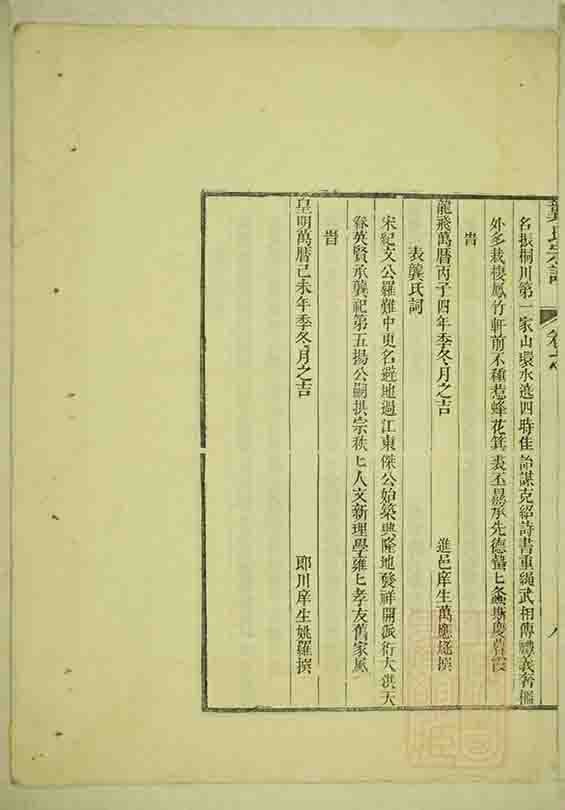 龔氏宗譜 卷之
名振桐川第一家山環水遶四時佳詒謀克紹詩書重繩武相傳禮義奢檻
外多栽棲鳳竹軒前不種惹蜂花箕裘丕承先德蟄〻螽斯慶霞
旹
龍飛萬曆丙子四年季冬月之吉 進邑庠生萬應撰
表龔氏詞
宋紀文公羅難中更名避地過江東傑公始築興隆地發祥開派衍大洪天
眷英賢承龔祀第五揚公嗣拱宗秩〻人文新理學雍〻孝友舊家風
旹
皇明萬曆己未年季冬月之吉 耶川庠生姚羅撰